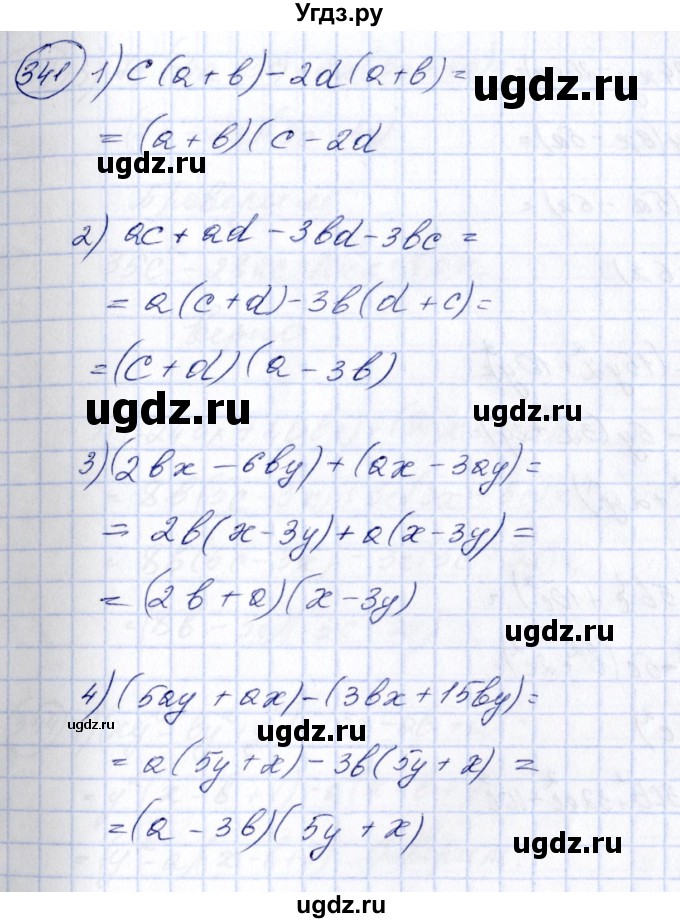 Угдз.ру
341 1) c(a+b)-2d(a+b)=
ugdz.ru
= (a+b)(c-2d
ugdz.ru
ugdz.ru
2) ac+ad-3bd-3bc=
= a(c+d)-3b(d+c)=
= (c+d)(a-3b)
ugdz.ru
ugdz.ru
3) (2bx-6by)+(ax-3ay)=
= 2b(x-3y)+a(x-3y)=
= (2b+a)(x-3y)
ugdz.ru
4) (5ay+ax)-(3bx+15by)=
ugdz.ru
ugdz.ru
= a(5y+x)-3b(5y+x)=
= (a-3b)(5y+x)
ugdz.ru
ugdz.ru